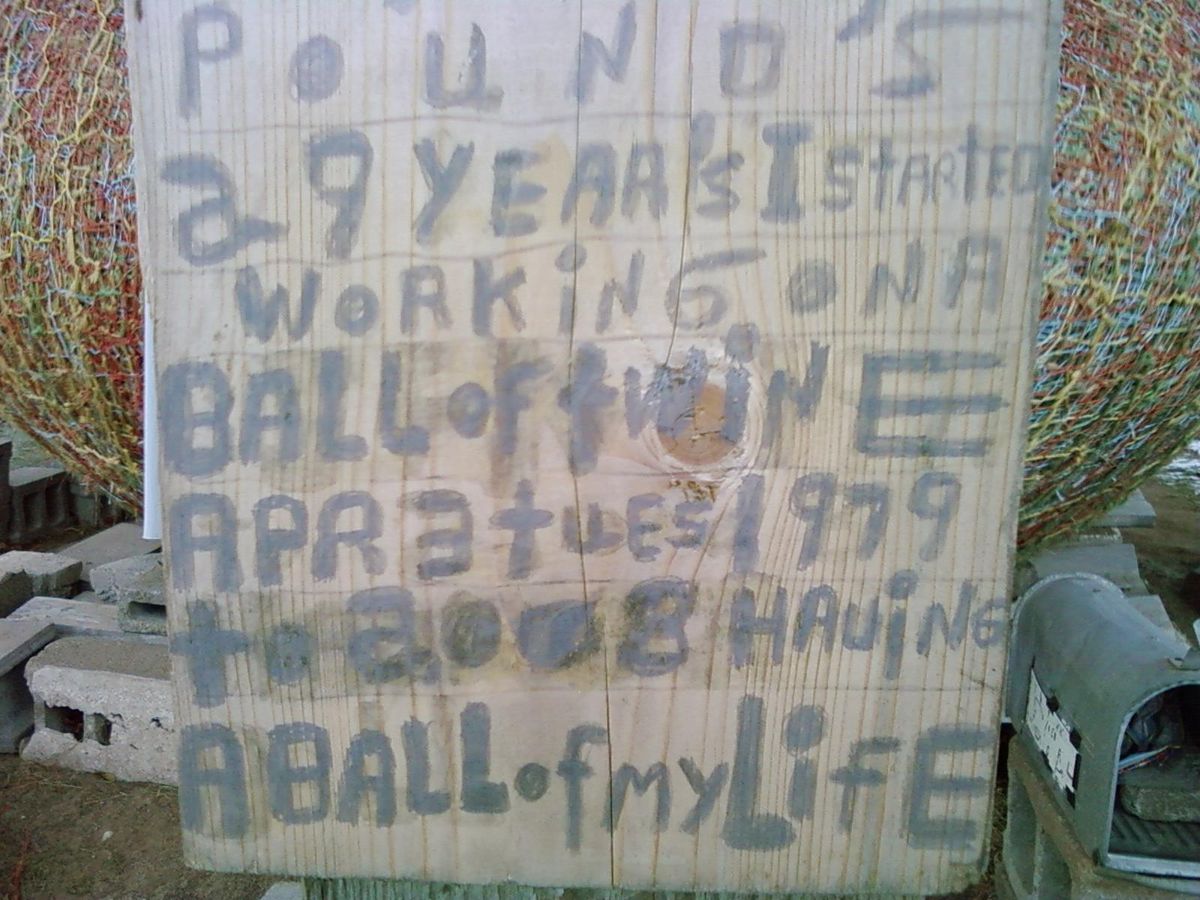 POUND'S
29 YEAR'S I StARtED
WORKiNG ON A
BALL OF tWiNE
APR 3 tUES 1979
to 2008 HAViNG
A BALL of my LifE